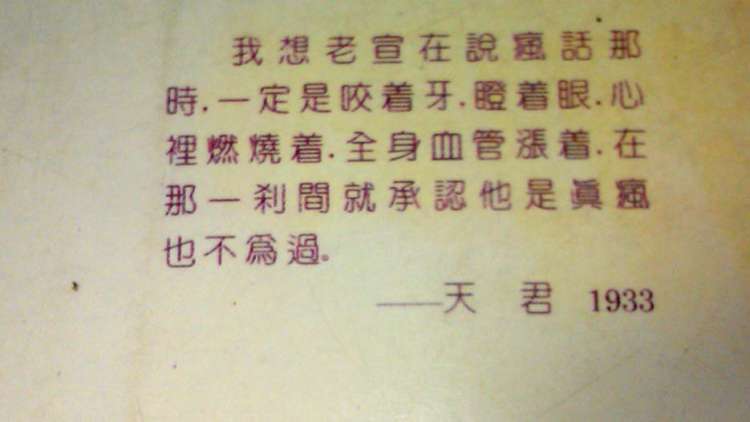 我想老宣在說瘋話那
時，一定是咬着牙，瞪着眼，心
裡燃燒着，全身血管漲着，在
那一剎間就承認他是眞瘋
也不爲過。
——天 君 1933